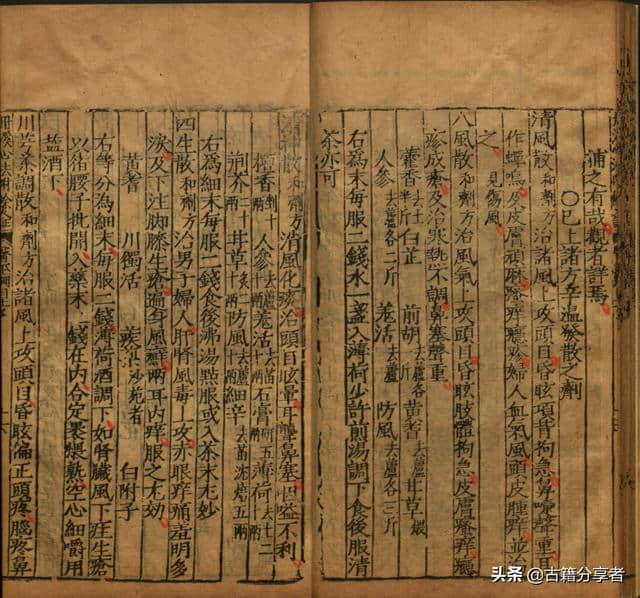 浦之有或觀者詳焉
〇已上諸方辛溫發散之劑
清風散和劑方治諸風上攻頭目昏眩項背拘急鼻嚏聲重
作蟬鳴及皮膚頑麻瘙痒癮疹婦人血氣風頭皮腫痒並治
之 見傷風
八風散和劑方治風氣上攻頭目昏眩肢體拘急皮膚瘙痒癮
疹成瘡及治寒熱不調鼻塞聲重
藿香去土半斤 白芷 前胡去蘆各一斤 黃耆 甘草
人參去蘆各二斤 羌活 防風去蘆各三斤
右為末每服二錢水一盞入薄荷少許煎湯調下食後服清
茶亦可
散和劑方清風化痰治頭目眩暈耳聾鼻塞咽嗌不利
人參 羌活 石膏 薄荷
荊芥 甘草 防風 細辛
右為細末每服二錢食後沸湯點服或入茶末尤妙
四生散和劑方治男子婦人肝腎風毒上攻赤眼痒痛羞明多
淚及下注腳膝生瘡遍身風癬兩耳內痒服之尤効
黃耆 川獨活 蒺藜沙苑者 白附子
右等分為細末每服二錢薄荷酒調下如腎臟風下疰生瘡
以猪腰子批開入藥末一錢在內合定裹煨熟空心細嚼用
盐酒下
川芎茶調散和劑方治諸風上攻頭目昏眩偏正頭疼腦疼鼻
头条 @古籍分享者